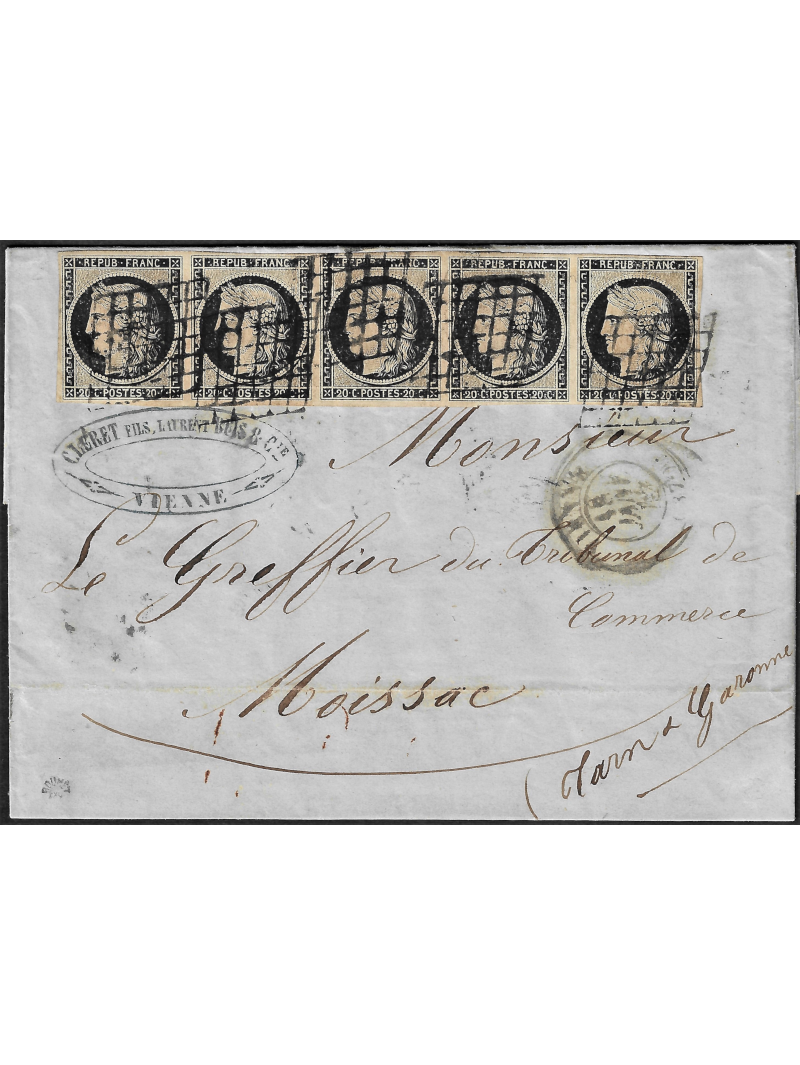 REPUB·FRANC· REPUB·FRANC· REPUB·FRANC· REPUB·FRANC· REPUB·FRANC·
20·C·POSTES·20·C· 20·C·POSTES·20·C· 20·C·POSTES·20·C· 20·C·POSTES·20·C· 20·C·POSTES·20·C·
CLERET FILS, LAURENT BUIS & CIE
VIENNE
Monsieur
Le Greffier du Tribunal de
Commerce
Moissac
(Tarn & Garonne